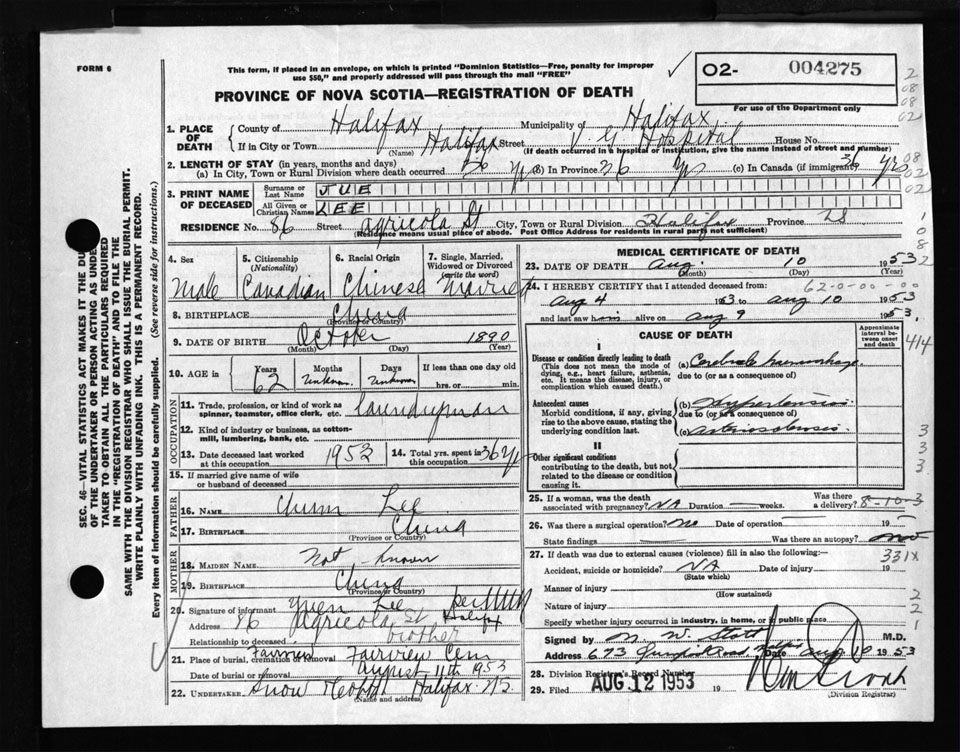 FORM 6
This form, if placed in an envelope, on which is printed "Dominion Statistics—Free, penalty for improper
use $50," and properly addressed will pass through the mail "FREE"
O2- 004275
For use of the Department only
PROVINCE OF NOVA SCOTIA—REGISTRATION OF DEATH
1. PLACE OF DEATH
County of Halifax Municipality of Halifax
If in City or Town Halifax Street V G Hospital House No.
(Name) (If death occurred in a hospital or institution, give the name instead of street and number)
2. LENGTH OF STAY (in years, months and days)
(a) In City, Town or Rural Division where death occurred 36 yrs (b) In Province 36 yrs (c) In Canada (if immigrant) 36 yrs
3. PRINT NAME OF DECEASED
Surname or Last Name JUE
All Given or Christian Names LEE
RESIDENCE No. 86 Street Agricola St City, Town or Rural Division Halifax Province NS
(Residence means usual place of abode. Post Office Address for residents in rural parts not sufficient)
4. Sex Male
5. Citizenship (Nationality) Canadian
6. Racial Origin Chinese
7. Single, Married, Widowed or Divorced (write the word) Married
8. BIRTHPLACE China
(Province or Country)
9. DATE OF BIRTH October 1890
(Month) (Day) (Year)
10. AGE in Years 62 Months Unknown Days Unknown If less than one day old
hrs. or min.
OCCUPATION
11. Trade, profession, or kind of work as spinner, teamster, office clerk, etc. laundryman
12. Kind of industry or business, as cotton-mill, lumbering, bank, etc.
13. Date deceased last worked at this occupation 1953
14. Total yrs. spent in this occupation 36 yrs
15. If married give name of wife or husband of deceased
FATHER
16. NAME Chunn Lee
17. BIRTHPLACE China
(Province or Country)
MOTHER
18. MAIDEN NAME Not known
19. BIRTHPLACE China
(Province or Country)
20. Signature of informant Yuen Lee per
Address 86 Agricola St Halifax
Relationship to deceased brother
21. Place of burial, cremation or removal Fairview Cem
Date of burial or removal August 11th 1953
22. UNDERTAKER Snow Halifax NS
(Name and address)
MEDICAL CERTIFICATE OF DEATH
23. DATE OF DEATH Aug. 10 1953
(Month) (Day) (Year)
62-0-00-00
24. I HEREBY CERTIFY that I attended deceased from:
Aug 4 1953 to Aug 10 1953
and last saw him alive on Aug 9 1953.
CAUSE OF DEATH
Approximate interval between onset and death
I
Disease or condition directly leading to death
(This does not mean the mode of dying, e.g., heart failure, asthenia, etc. It means the disease, injury, or complication which caused death.)
(a) Cerebral hemorrhage
due to (or as a consequence of)
Antecedent causes
Morbid conditions, if any, giving rise to the above cause, stating the underlying condition last.
(b) Hypertension
due to (or as a consequence of)
(c) Arteriosclerosis
II
Other significant conditions
contributing to the death, but not related to the disease or condition causing it.
25. If a woman, was the death associated with pregnancy? NA Duration weeks. Was there a delivery? 8-10-3
26. Was there a surgical operation? No Date of operation 19
State findings Was there an autopsy? No
27. If death was due to external causes (violence) fill in also the following:— 331X
Accident, suicide or homicide? NA Date of injury 19
(State which)
Manner of injury
(How sustained)
Nature of injury
Specify whether injury occurred in industry, in home, or in public place
Signed by M. W. Stott M.D.
Address 673 Date Aug 10 1953
28. Division Registrar's Record Number
29. Filed AUG 12 1953 19
(Division Registrar)
SEC. 46—VITAL STATISTICS ACT MAKES IT THE DUTY
OF THE UNDERTAKER OR PERSON ACTING AS UNDER-
TAKER TO OBTAIN ALL THE PARTICULARS REQUIRED
IN THE "REGISTRATION OF DEATH" AND TO FILE THE
SAME WITH THE DIVISION REGISTRAR WHO SHALL ISSUE THE BURIAL PERMIT.
WRITE PLAINLY WITH UNFADING INK. THIS IS A PERMANENT RECORD.
Every item of information should be carefully supplied. (See reverse side for instructions.)